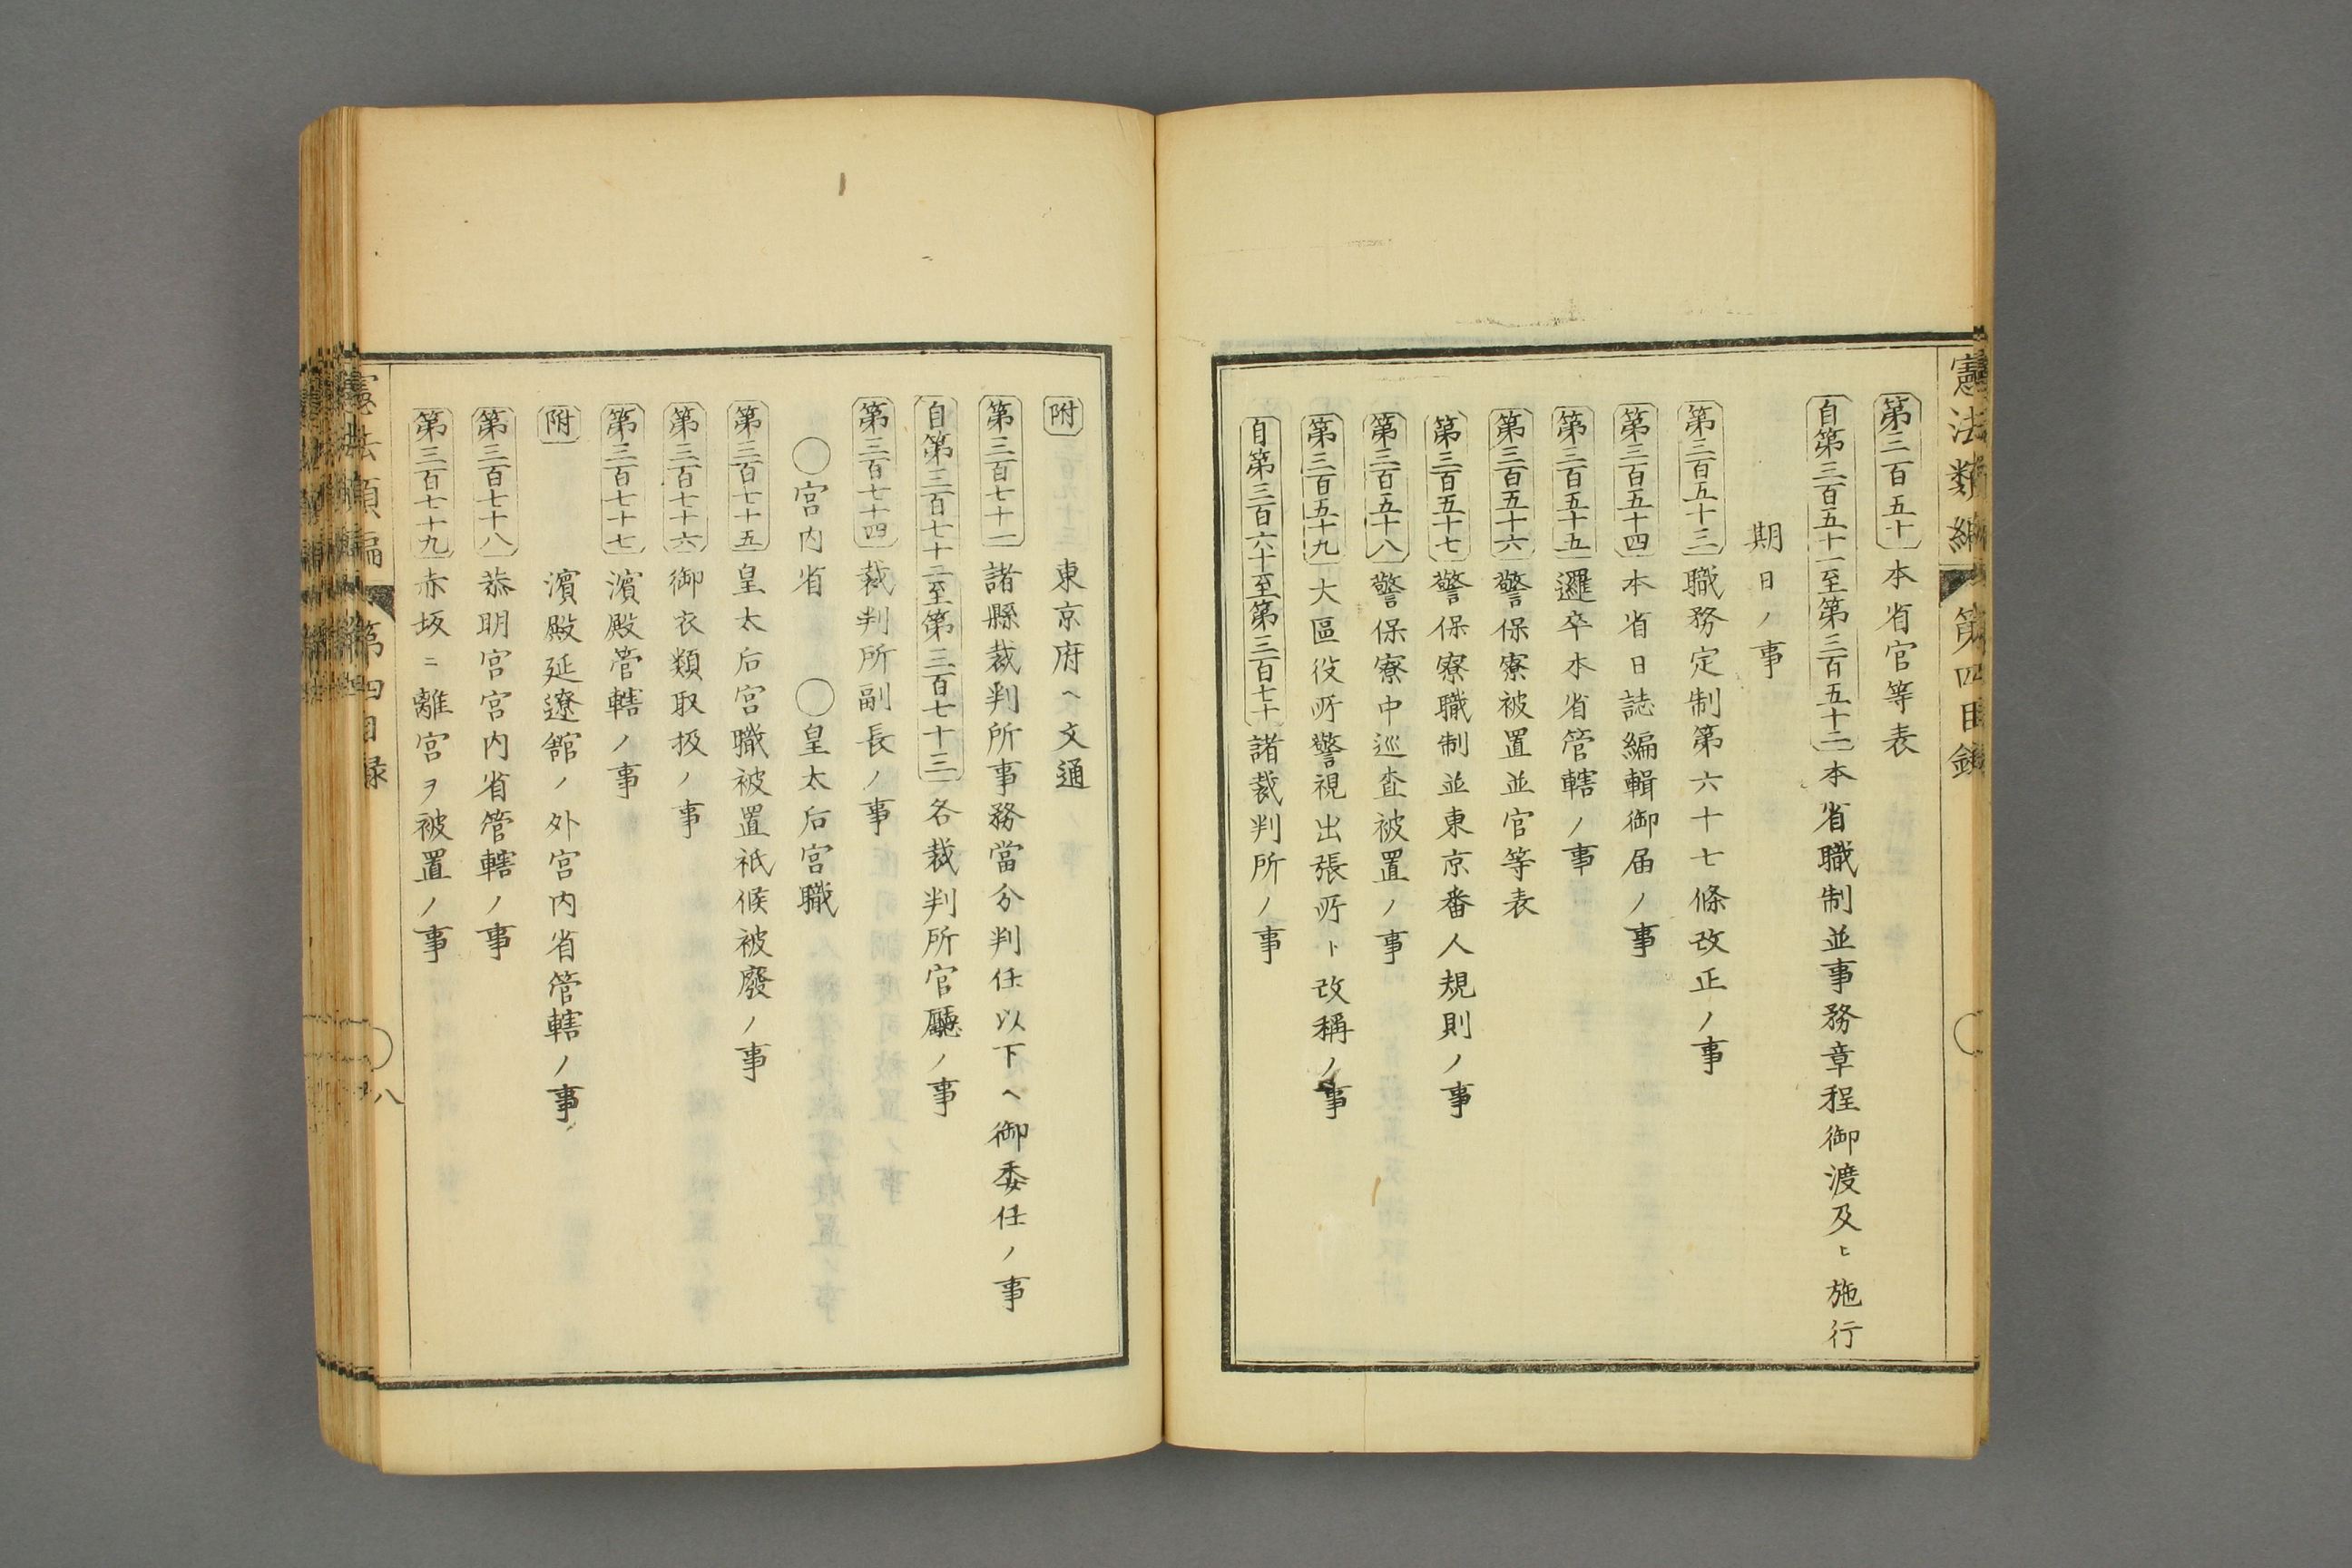 憲法類編 第四目錄
第三百五十 本省官等表
自第三百五十一至第三百五十二 本省職制並事務章程御渡及ヒ施行
期日ノ事
第三百五十三 職務定制第六十七條改正ノ事
第三百五十四 本省日誌編輯御届ノ事
第三百五十五 邏卒本省管轄ノ事
第三百五十六 警保寮被置並官等表
第三百五十七 警保寮職制並東京番人規則ノ事
第三百五十八 警保寮中巡査被置ノ事
第三百五十九 大區役所警視出張所ト改稱ノ事
自第三百六十至第三百七十 諸裁判所ノ事
附 東京府ヘ文通
第三百七十一 諸縣裁判所事務當分判任以下ヘ御委任ノ事
自第三百七十二至第三百七十三 各裁判所官廳ノ事
第三百七十四 裁判所副長ノ事
○宮内省 ○皇太后宮職
第三百七十五 皇太后宮職被置祗候被廢ノ事
第三百七十六 御衣類取扱ノ事
第三百七十七 濱殿管轄ノ事
附 濱殿延遼館ノ外宮内省管轄ノ事
第三百七十八 恭明宮宮内省管轄ノ事
第三百七十九 赤坂ニ離宮ヲ被置ノ事
憲法類編 第四目録 八